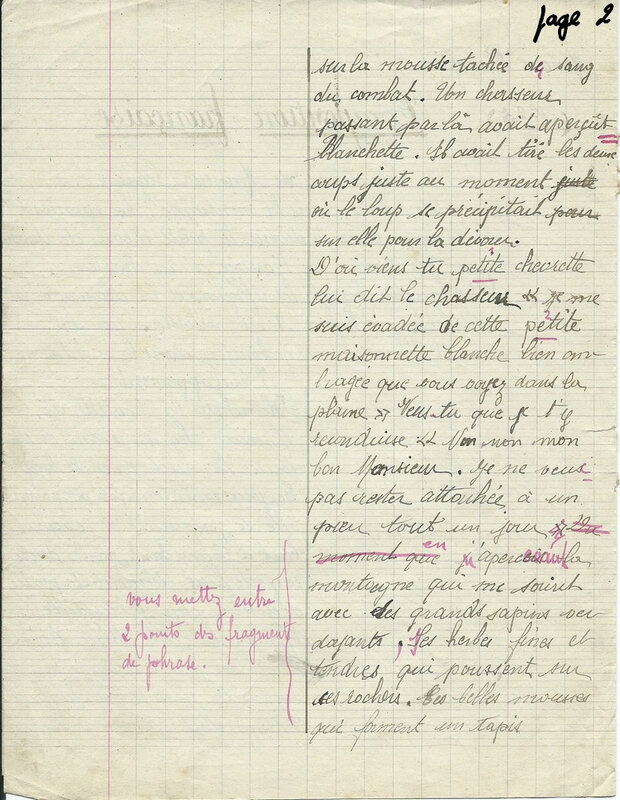 page 2
sur la mousse tachée de sang
du combat. Un chasseur
passant par là avait aperçût
Blanchette. Il avait tiré les deux
coups juste au moment juste
où le loup se précipitait pour
sur elle pour la dévorer.
D'où viens tu petite chevrette
lui dit le chasseur « je me
suis évadée de cette petite
maisonnette blanche bien om-
bragée que vous voyez dans la
plaine » Veus tu que je t'y
reconduise « Non non mon
bon Monsieur. Je ne veus
pas rester attachée à un
pieu tout un jour
moment que en j'aperc la
montagne qui me sourit
avec des grands sapins ver-
doyants, ses herbes fines et
tendres qui poussent sur
ses rochers. Ses belles mousses
qui forment un tapis
vous mettez entre
2 points des fragments
de phrase.